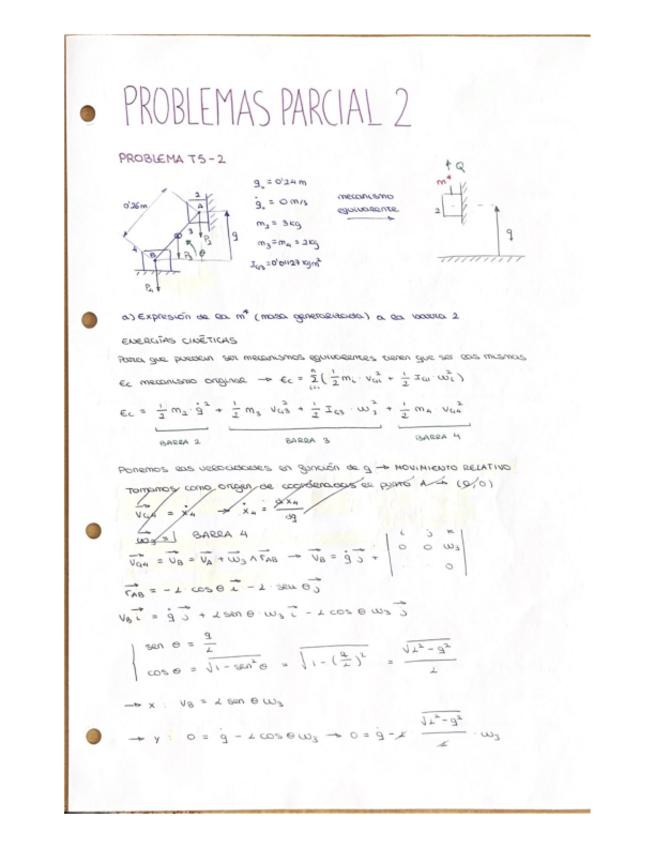 PROBLEMAS PARCIAL 2
PROBLEMA T5-2
0'26m
2
A
3
B
4
P2
P3
θ
P4
q
q₀ = 0'24 m
q̇₀ = 0 m/s
m₂ = 3 kg
m₃ = m₄ = 2 kg
I_G3 = 0'01127 kg m²
mecanismo
equivalente
Q
m*
2
q
a) Expresión de la m* (masa generalizada) a la barra 2
ENERGÍAS CINÉTICAS
Para que puedan ser mecanismos equivalentes tienen que ser las mismas
Ec mecanismo original → Ec = Σ(1/2 mᵢ · v_Gi² + 1/2 I_Gi · ωᵢ²)
Ec = 1/2 m₂ · q̇² + 1/2 m₃ v_G3² + 1/2 I_G3 · ω₃² + 1/2 m₄ v_G4²
BARRA 2 BARRA 3 BARRA 4
Ponemos las velocidades en función de q → MOVIMIENTO RELATIVO
Tomamos como origen de coordenadas el punto A → (0,0)
v_G4 = ẋ₄ → ẋ₄ = dx₄/dq
BARRA 4
v_G4 = v_B = v_A + ω₃ ∧ r_AB → v_B = q̇ j + | i j k
0 0 ω₃
· · 0 |
r_AB = -L cos θ i - L sen θ j
v_B i = q̇ j + L sen θ · ω₃ i - L cos θ ω₃ j
sen θ = q/L
cos θ = √(1 - sen² θ) = √(1 - (q/L)²) = √(L² - q²)/L
→ x : v_B = L sen θ ω₃
→ y : 0 = q̇ - L cos θ ω₃ → 0 = q̇ - L √(L² - q²)/L · ω₃